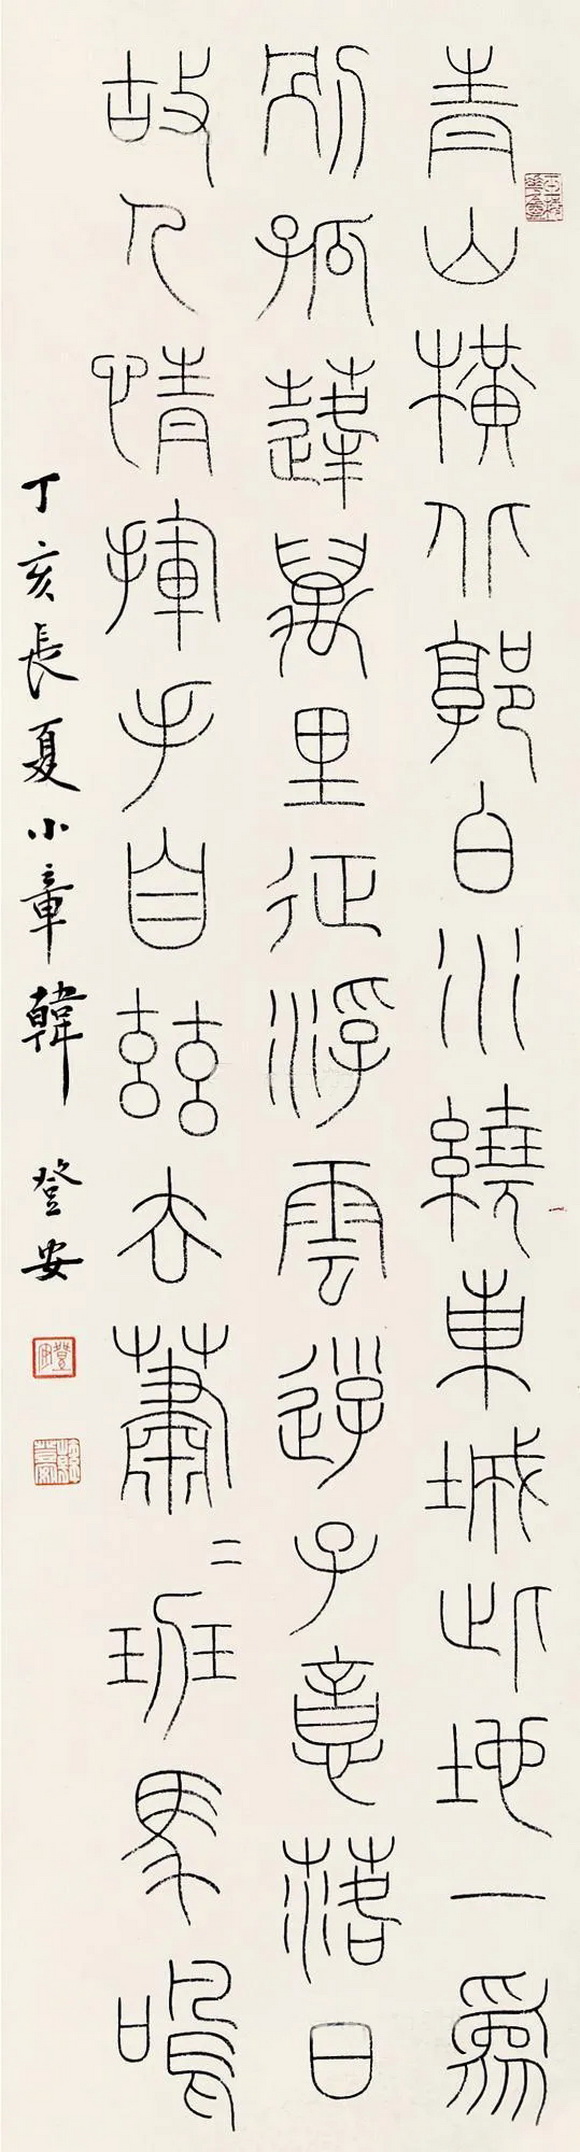 青山橫北郭白水繞東城此地一為
別孤蓬萬里征浮雲游子意落日
故人情揮手自茲去蕭二班馬鳴
丁亥長夏小章韓登安
登安